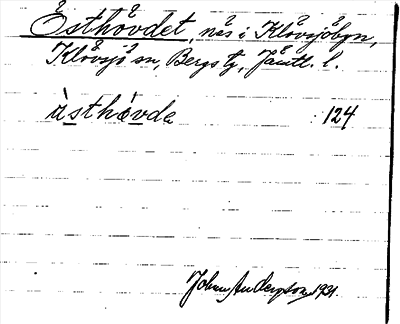 Östhövdet, näs i Klövsjöbyn,
Klövsjö sn, Bergs tg, Jämtl. l.
östhövdɐ 124
Johan Anderson 1931.